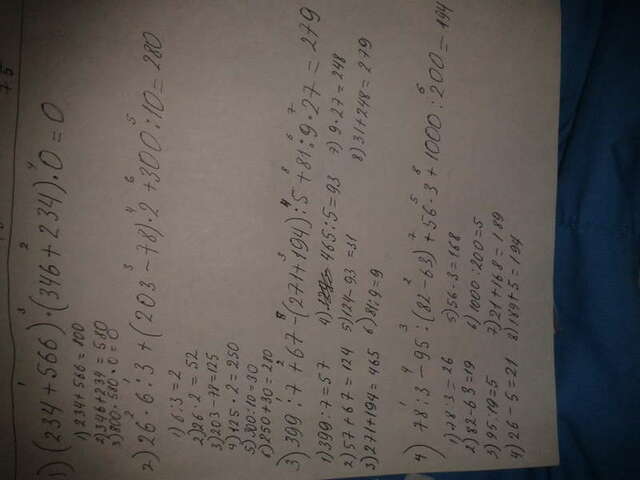 75
1) (234+566)·(346+234)·0=0
1) 234+566=800
2) 346+234=580
3) 800·580·0=0
2) 26·6:3+(203-78)·2+300:10=280
1) 6:3=2
2) 26·2=52
3) 203-78=125
4) 125·2=250
5) 300:10=30
6) 250+30=280
3) 399:7+67-(271+194):5+81:9·27=279
1) 399:7=57
2) 57+67=124
3) 271+194=465
4) 465:5=93
5) 124-93=31
6) 81:9=9
7) 9·27=248
8) 31+248=279
4) 78:3-95:(82-63)+56·3+1000:200=194
1) 78:3=26
2) 82-63=19
3) 95:19=5
4) 26-5=21
5) 56·3=168
6) 1000:200=5
7) 21+168=189
8) 189+5=194